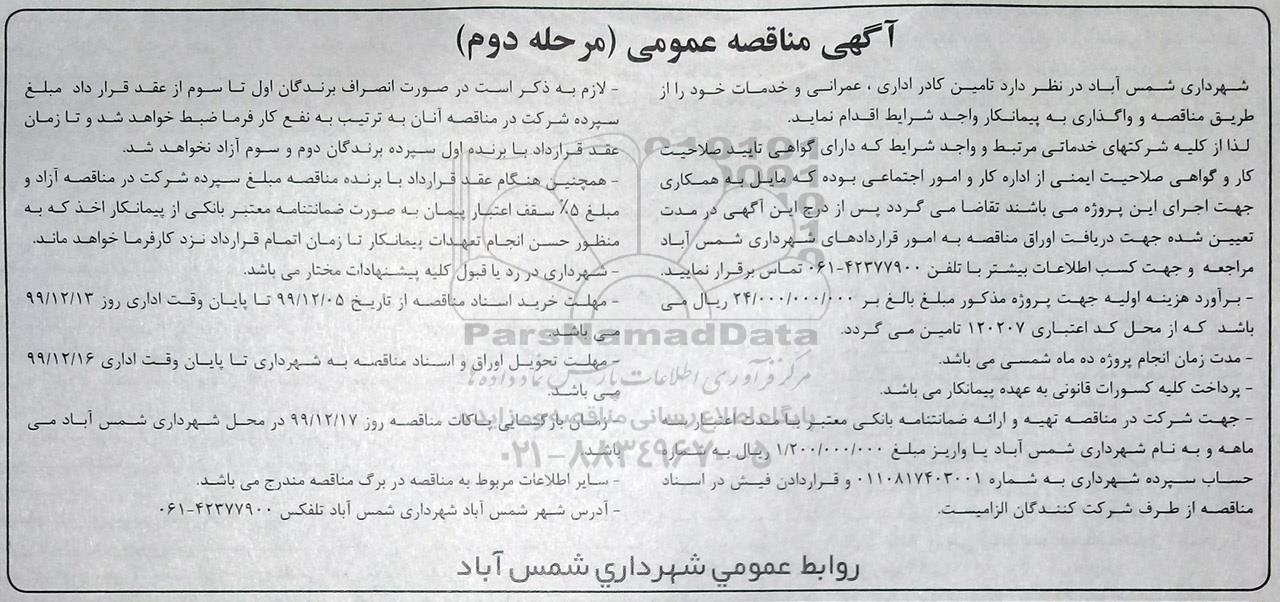 آگهی مناقصه عمومی (مرحله دوم)
شهرداری شمس آباد در نظر دارد تامین کادر اداری ، عمرانی و خدمات خود را از
طریق مناقصه و واگذاری به پیمانکار واجد شرایط اقدام نماید.
لذا از کلیه شرکتهای خدماتی مرتبط و واجد شرایط که دارای گواهی تایید صلاحیت
کار و گواهی صلاحیت ایمنی از اداره کار و امور اجتماعی بوده که مایل به همکاری
جهت اجرای این پروژه می باشند تقاضا می گردد پس از درج این آگهی در مدت
تعیین شده جهت دریافت اوراق مناقصه به امور قراردادهای شهرداری شمس آباد
مراجعه و جهت کسب اطلاعات بیشتر با تلفن ۴۲۳۷۷۹۰۰-۰۶۱ تماس برقرار نمایید.
- برآورد هزینه اولیه جهت پروژه مذکور مبلغ بالغ بر ۲۴/۰۰۰/۰۰۰/۰۰۰ ریال می
باشد که از محل کد اعتباری ۱۲۰۲۰۷ تامین می گردد.
- مدت زمان انجام پروژه ده ماه شمسی می باشد.
- پرداخت کلیه کسورات قانونی به عهده پیمانکار می باشد.
- جهت شرکت در مناقصه تهیه و ارائه ضمانتنامه بانکی معتبر با مدت اعتبار سه
ماهه و به نام شهرداری شمس آباد یا واریز مبلغ ۱/۲۰۰/۰۰۰/۰۰۰ ریال به شماره
حساب سپرده شهرداری به شماره ۰۱۱۰۸۱۷۴۰۳۰۰۱ و قراردادن فیش در اسناد
مناقصه از طرف شرکت کنندگان الزامیست.
- لازم به ذکر است در صورت انصراف برندگان اول تا سوم از عقد قرار داد مبلغ
سپرده شرکت در مناقصه آنان به ترتیب به نفع کار فرما ضبط خواهد شد و تا زمان
عقد قرارداد با برنده اول سپرده برندگان دوم و سوم آزاد نخواهد شد.
- همچنین هنگام عقد قرارداد با برنده مناقصه مبلغ سپرده شرکت در مناقصه آزاد و
مبلغ ۵٪ سقف اعتبار پیمان به صورت ضمانتنامه معتبر بانکی از پیمانکار اخذ که به
منظور حسن انجام تعهدات پیمانکار تا زمان اتمام قرارداد نزد کارفرما خواهد ماند.
- شهرداری در رد یا قبول کلیه پیشنهادات مختار می باشد.
- مهلت خرید اسناد مناقصه از تاریخ ۹۹/۱۲/۰۵ تا پایان وقت اداری روز ۹۹/۱۲/۱۳
می باشد.
- مهلت تحویل اوراق و اسناد مناقصه به شهرداری تا پایان وقت اداری ۹۹/۱۲/۱۶
می باشد.
- زمان بازگشایی پاکات مناقصه روز ۹۹/۱۲/۱۷ در محل شهرداری شمس آباد می
باشد.
- سایر اطلاعات مربوط به مناقصه در برگ مناقصه مندرج می باشد.
- آدرس شهر شمس آباد شهرداری شمس آباد تلفکس ۴۲۳۷۷۹۰۰-۰۶۱
روابط عمومي شهرداري شمس آباد
ParsNamadData
مرکز فرآوری اطلاعات پارس نماد داده ها
پایگاه اطلاع رسانی مناقصه و مزایده
۰۲۱-۸۸۳۴۹۶۷۰-۵